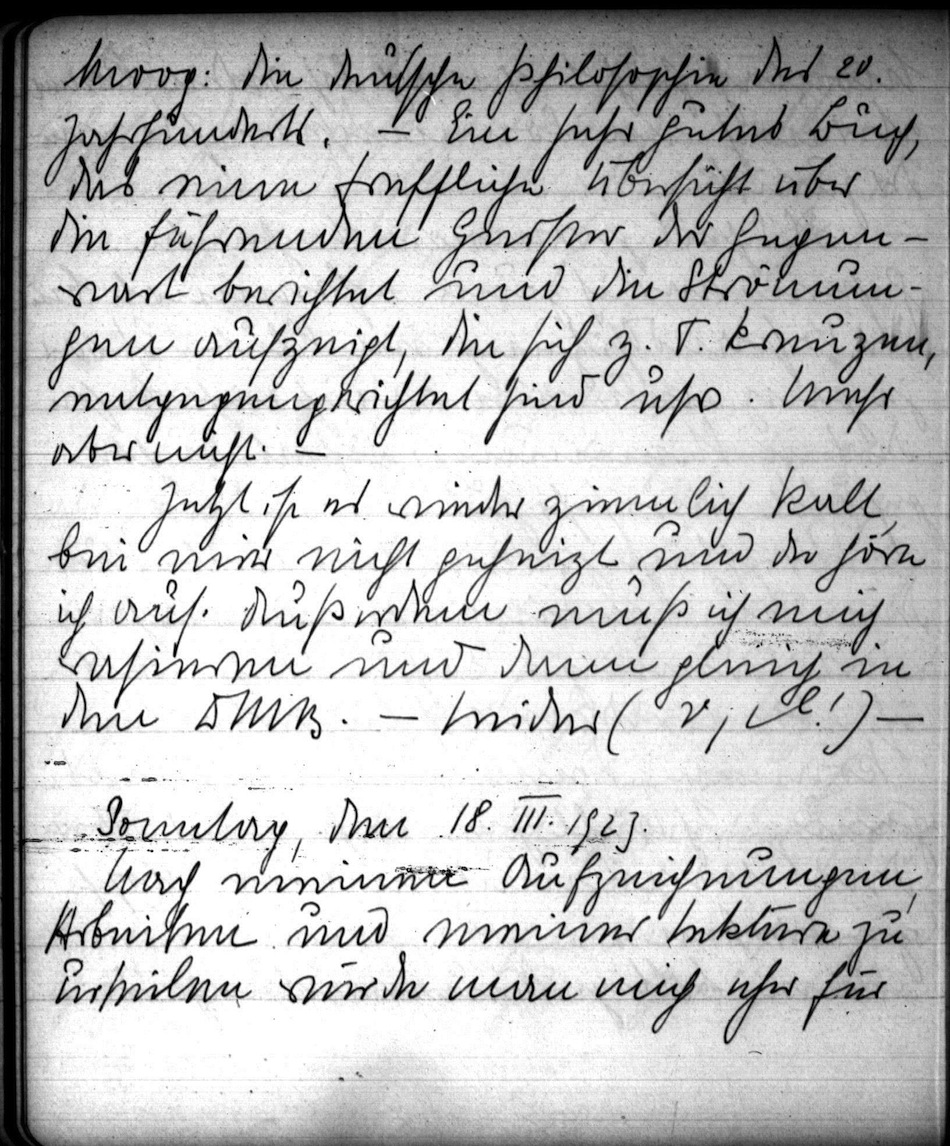 Moog: Die deutsche Philosophie des 20.
Jahrhunderts. — Ein sehr gutes Buch,
das eine treffliche Übersicht über
die führenden Geister der Gegen-
wart berichtet und die Strömun-
gen aufzeigt, die sich z. T. kreuzen,
entgegengerichtet sind usw. Mehr
aber nicht. —
Jetzt ist es wieder ziemlich kalt,
bei mir nicht geheizt und da höre
ich auf. Außerdem muß ich mich
rasieren und dann gleich in
den —. Leider ( !) —
Sonntag, den 18. III. 1923.
Nach meinen Aufzeichnungen,
Arbeiten und meiner Lektüre zu
urteilen würde man mich eher für